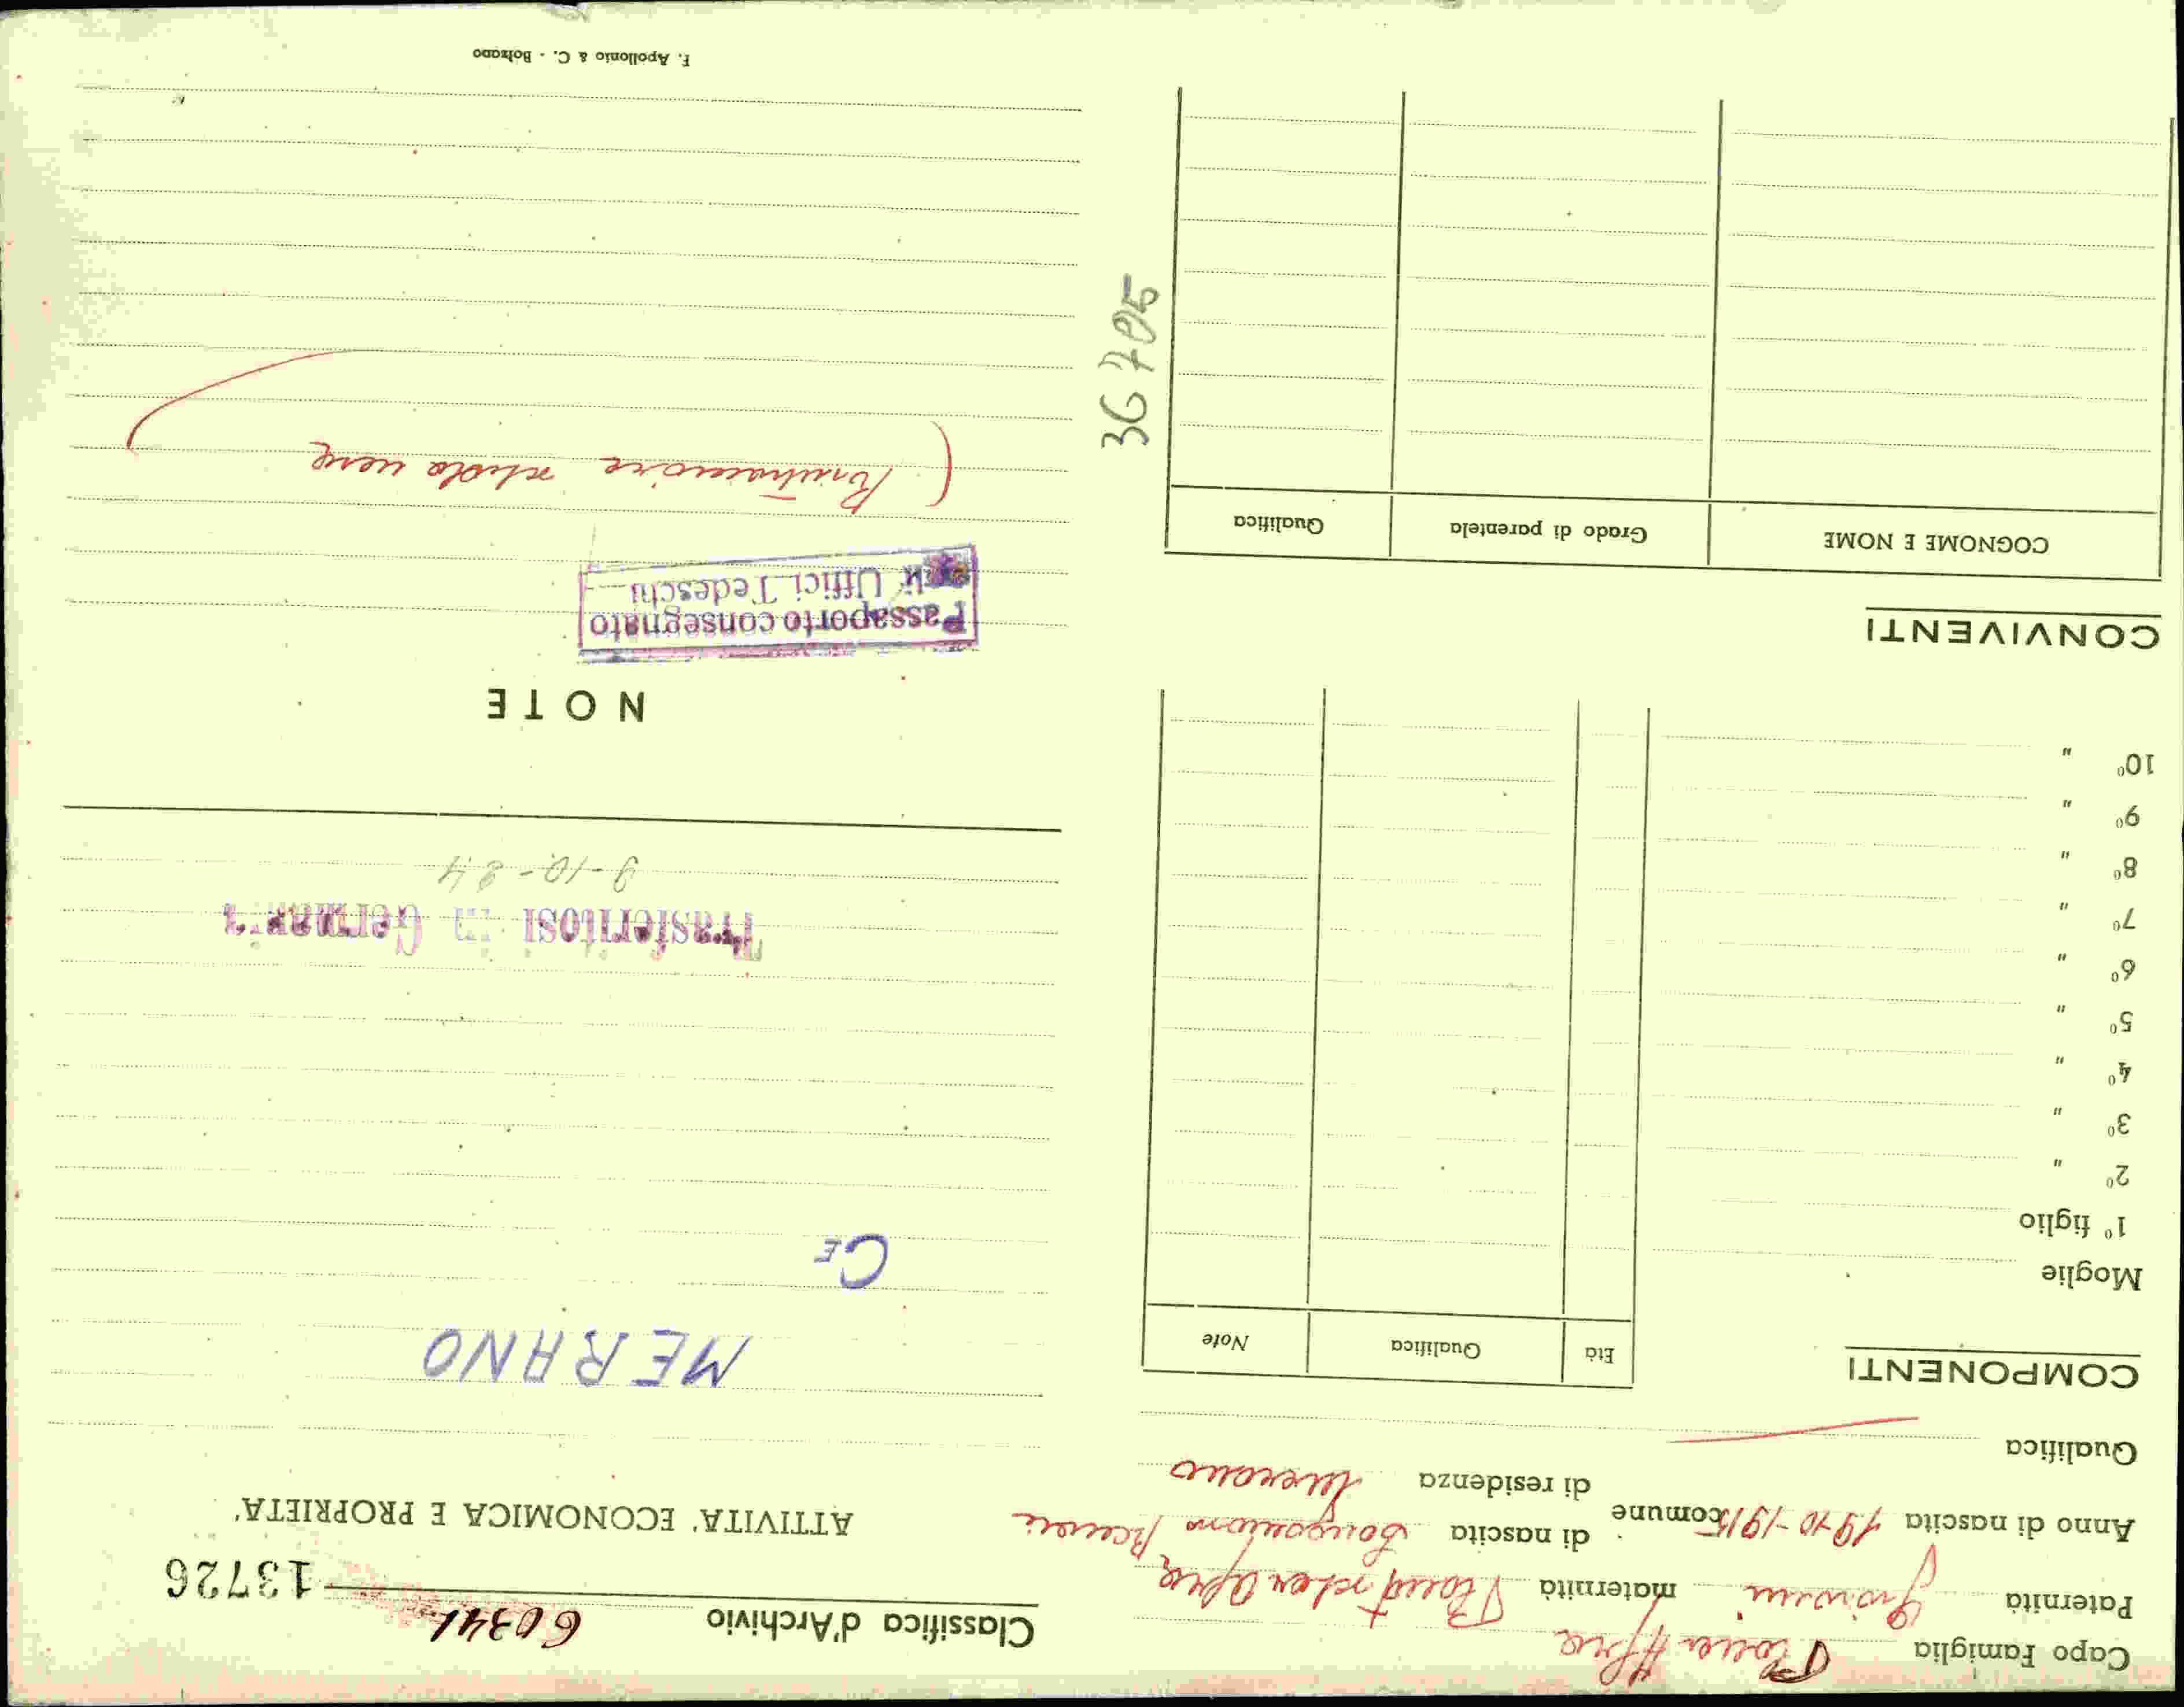 Capo Famiglia Afra
Paternità Giovanni maternità Afra
Anno di nascita 19-10-1915 comune di nascita
di residenza Merano
Qualifica
COMPONENTI
Età Qualifica Note
Moglie
1° figlio
2° "
3° "
4° "
5° "
6° "
7° "
8° "
9° "
10° "
CONVIVENTI
COGNOME E NOME Grado di parentela Qualifica
36705
Classifica d'Archivio 60341 13726
ATTIVITA' ECONOMICA E PROPRIETA'
MERANO
CE
Trasferitosi in Germania
9-10-
NOTE
Passaporto consegnato
agli Uffici Tedeschi
( Rintracciare scheda nera
F. Apollonio & C. - Bolzano